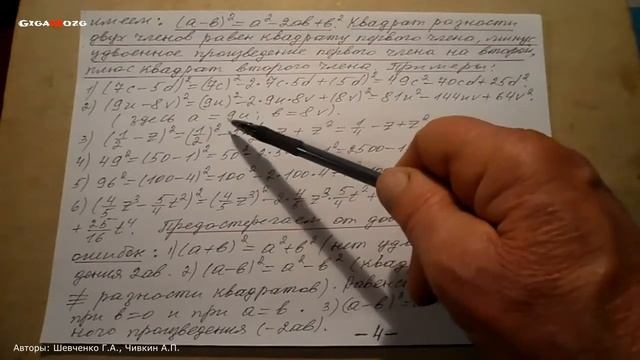 GIGAMOZG
имеем: (а-в)²=а²-2ав+в². Квадрат разности
двух членов равен квадрату первого члена, минус
удвоенное произведение первого члена на второй,
плюс квадрат второго члена. Примеры:
1) (7c-5d)²=(7c)²-2·7c·5d+(5d)²=49c²-70cd+25d².
2) (9u-8v)²=(9u)²-2·9u·8v+(8v)²=81u²-144uv+64v².
(Здесь а = 9u; в=8v).
3) (1/2-z)²=(1/2)² z+z²=1/4-z+z²
4) 49²=(50-1)²=50² =2500-1
5) 96²=(100-4)²=100²-2·100·4
6) (4/5 z³-5/4 t²)²=(4/5 z³)²-2·4/5 z³·5/4 t²+
+25/16 t⁴. Предостерегаем от
ошибок: 1) (а+в)²=а²+в² (нет
дения 2ав. 2) (а-в)²=а²-в²
≠ разности квадратов).
при в=0 и при а=в. 3) (а-в)²=
ного произведения (-2ав). -4-
Авторы: Шевченко Г.А., Чивкин А.П.